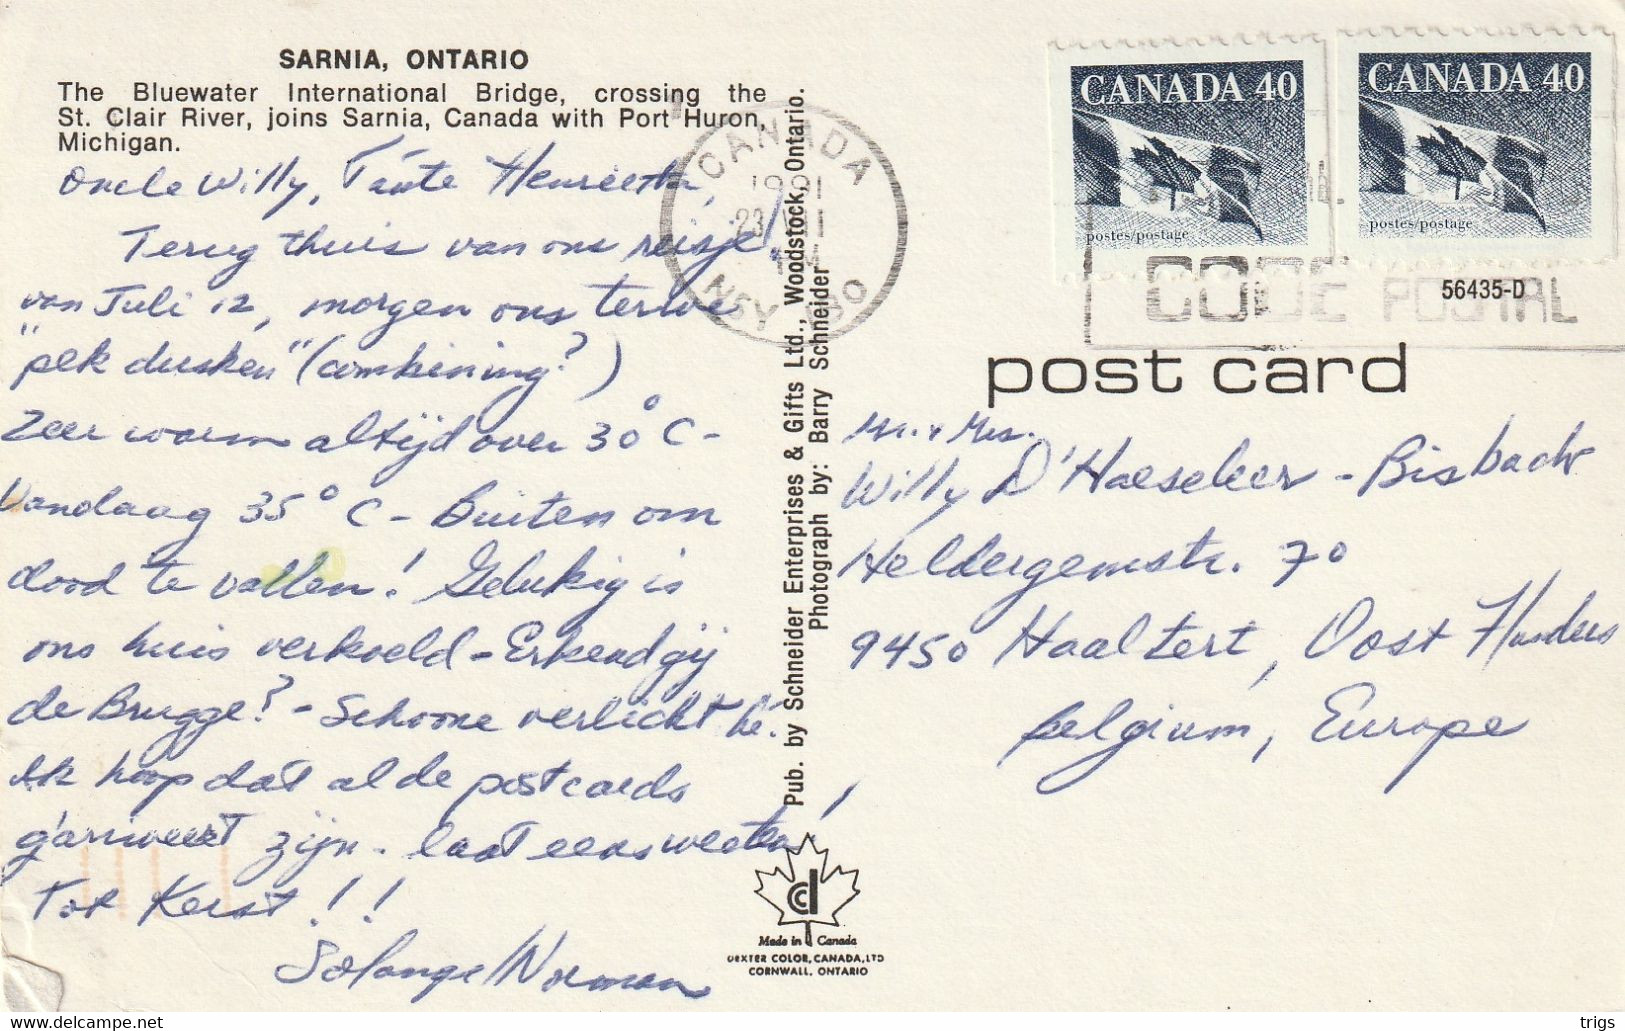 SARNIA, ONTARIO
The Bluewater International Bridge, crossing the
St. Clair River, joins Sarnia, Canada with Port Huron,
Michigan.
Oncle Willy, Tante Henrietta,
Terug thuis van ons reisje
van Juli 12, morgen ons terwe
"pek dusken" (combining?)
Zeer warm altijd over 30°C -
Vandaag 35°C - Buiten om
dood te vallen! Gelukig is
ons huis verkoeld - Erkend gij
de Brugge? - Schoone verlicht hé.
Ik hoop dat al de postcards
g'arriveert zijn - laat eens weeten!
Tot Kerst!!
Solange/Norman
Pub. by Schneider Enterprises & Gifts Ltd., Woodstock, Ontario.
Photograph by: Barry Schneider
CANADA
1991
23
NSY 130
CANADA 40
postes/postage
CANADA 40
postes/postage
CODE POSTAL
56435-D
post card
Mr. & Mrs.
Willy D'Haeseleer - Bisbach
Heldergemstr. 70
9450 Haaltert, Oost Flanders
Belgium, Europe
Made in Canada
DEXTER COLOR, CANADA, LTD
CORNWALL, ONTARIO
delcampe.net
trigs